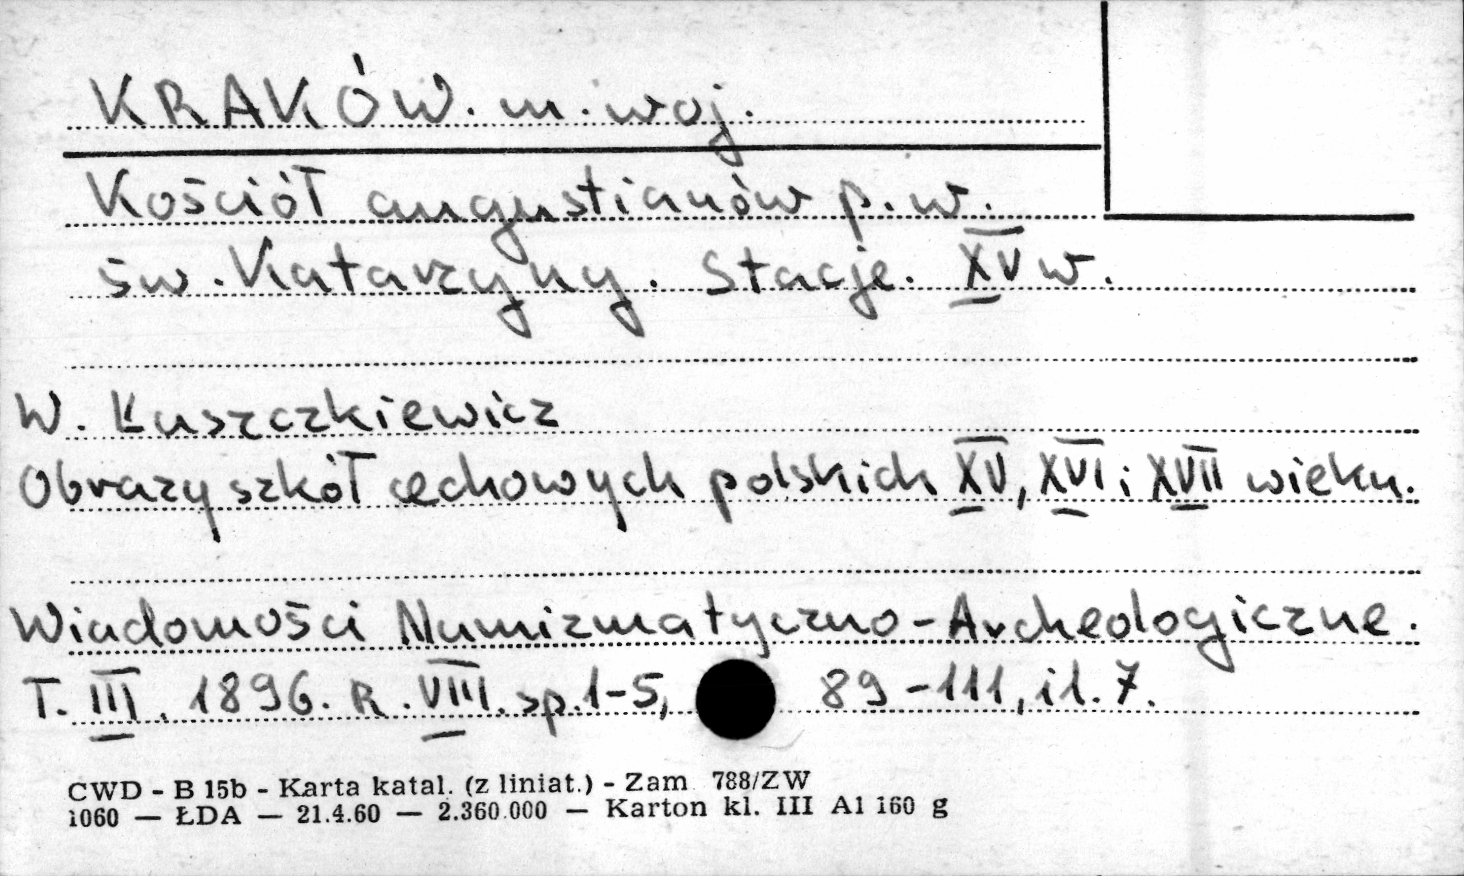 KRAKÓW. m. woj.
Kościół augustianów p.w.
św. Katarzyny. Stacje. XV w.
W. Łuszczkiewicz
Obrazy szkół cechowych polskich XV, XVI i XVII wieku.
Wiadomości Numizmatyczno-Archeologiczne.
T. III. 1896. R. VIII. sp. 1-5, 89-111, il. 7.
CWD - B 15b - Karta katal. (z liniat.) - Zam 788/ZW
1060 — ŁDA — 21.4.60 — 2.360.000 — Karton kl. III A1 160 g